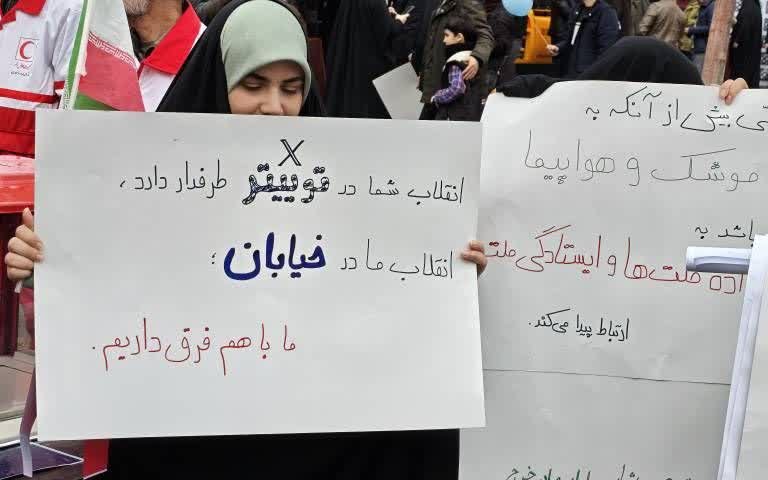 X
انقلاب شما در توییتر طرفدار دارد،
انقلاب ما در خیابان؛
ما با هم فرق داریم.
بیش از آنکه به
موشک و هواپیما
باشد به
اده ملت‌ها و ایستادگی ملت
ارتباط پیدا می‌کند.